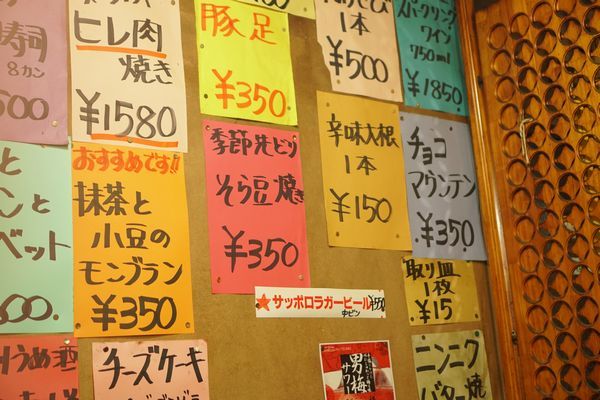 寿司
8カン
500
ヒレ肉
焼き
¥1580
豚足
¥350
1本
¥500
スパークリング
ワイン
750ml
¥1850
季節先どり
そら豆焼き
¥350
辛味大根
1本
¥150
チョコ
マウンテン
¥350
おすすめです!!
抹茶と
小豆の
モンブラン
¥350
★サッポロラガービール¥550
中ビン
取り皿
1枚
¥15
うめ酒
チーズケーキ
男梅
サワー
ニンニク
バター焼